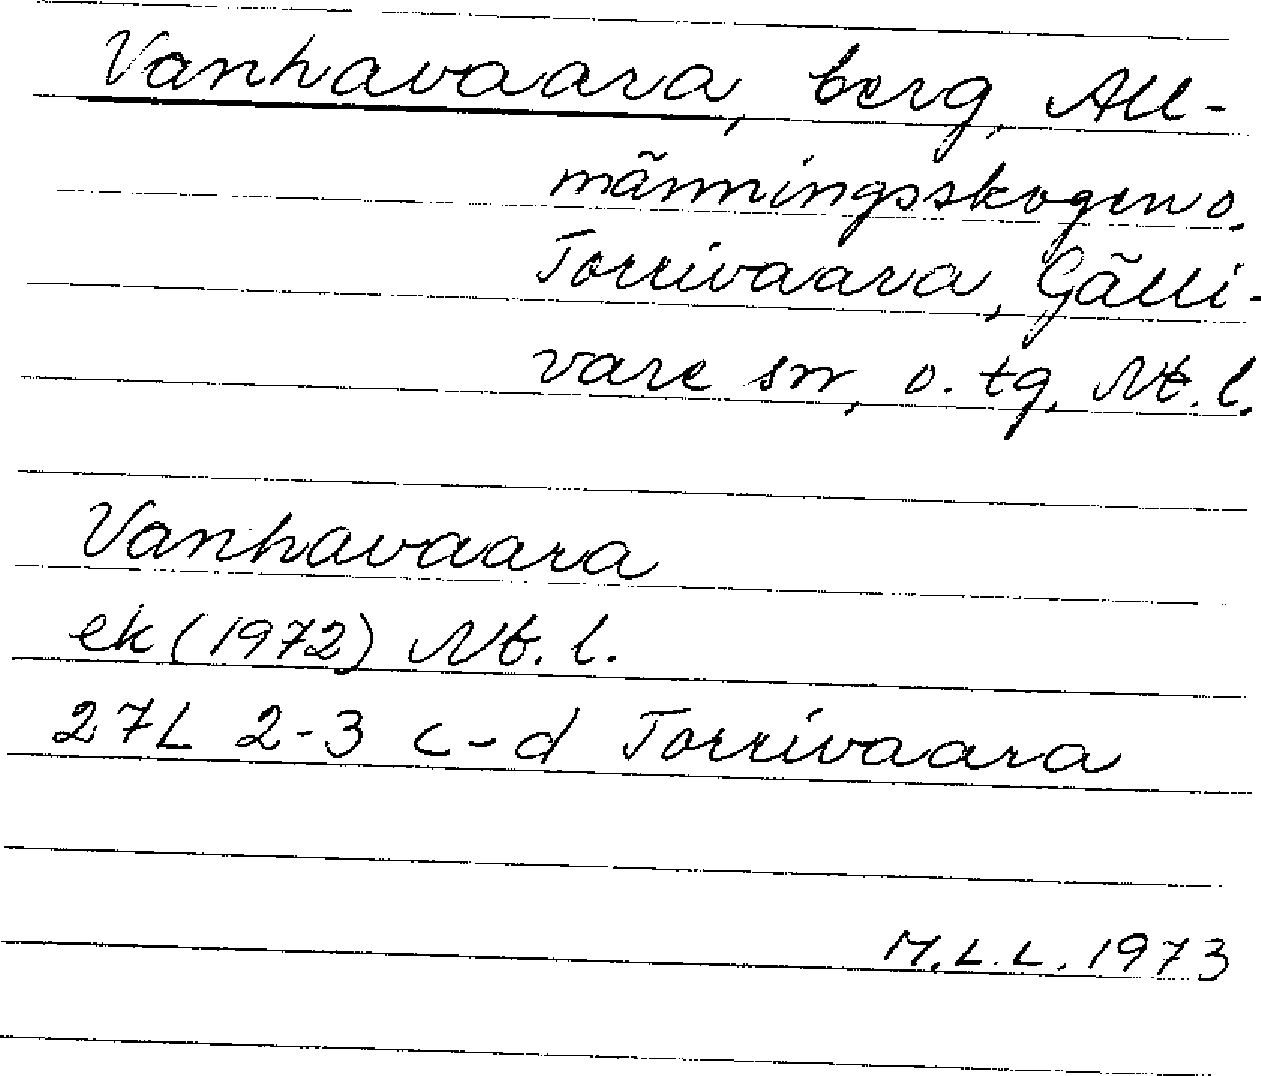 Vanhavaara, berg, All-
männingsskogen o.
Torrivaara, Gälli-
vare sn, o. tg, Nb. l.
Vanhavaara
ek (1972) Nb. l.
27L 2-3 c-d Torrivaara
M.L.L. 1973